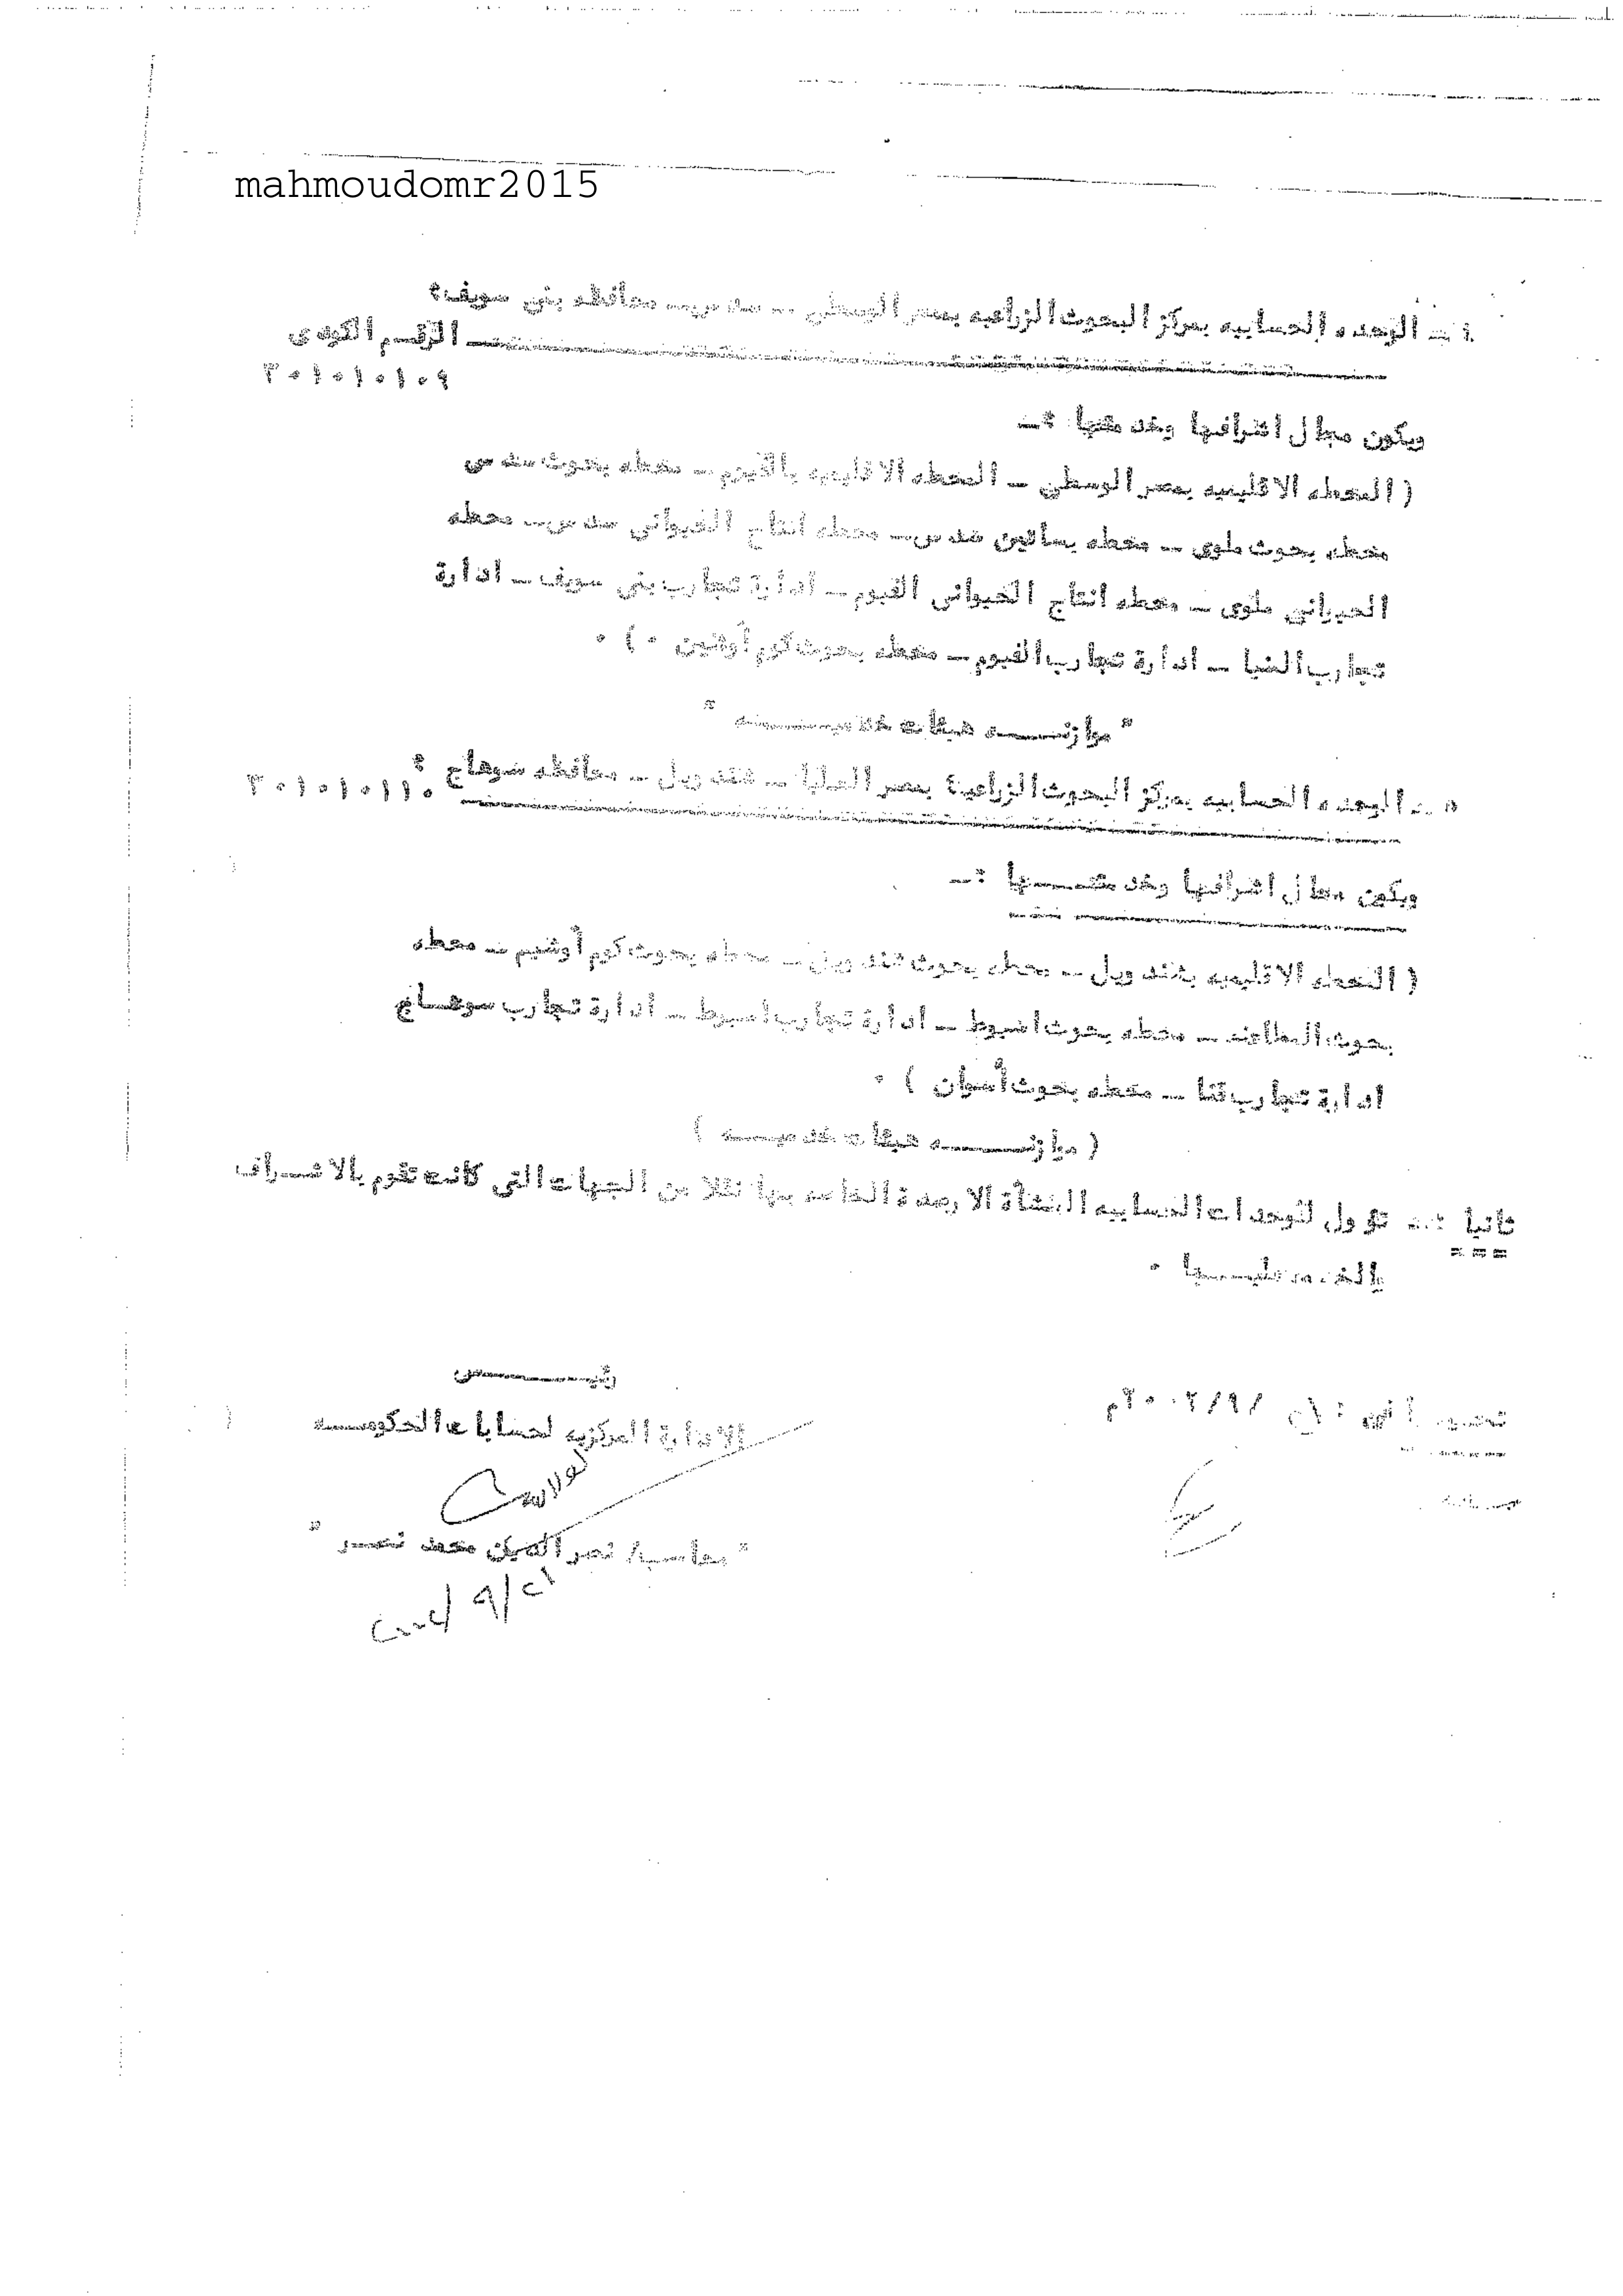 mahmoudomr2015
٤ ــ الوحده الحسابيه بمركز البحوث الزراعيه بمصر الوسطى ــ سدس ــ محافظه بنى سويف :
الرقم الكودى
٣٠١٠١٠١٠٩
ويكون مجال اشرافها وخدمتها :ــ
( المحطه الاقليميه بمصر الوسطى ــ المحطه الاقليميه بالفيوم ــ محطه بحوث سدس
محطه بحوث ملوى ــ محطه بساتين سدس ــ محطه انتاج الحيوانى سدس ــ محطه
الحيوانى ملوى ــ محطه انتاج الحيوانى الفيوم ــ ادارة تجارب بنى سويف ــ ادارة
تجارب المنيا ــ ادارة تجارب الفيوم ــ محطه بحوث كوم أوشين ٠ ) ٠
" موازنــــه هيئات خدميــــه "
٥ ــ الوحده الحسابيه بمركز البحوث الزراعية بمصر العليا ــ شندويل ــ محافظه سوهاج : ٣٠١٠١٠١١٠
ويكون مجال اشرافها وخدمتـــها :ــ
( المحطه الاقليميه بشندويل ــ محطه بحوث شندويل ــ محطه بحوث كوم أوشيم ــ محطه
بحوث المطاعنه ــ محطه بحوث اسيوط ــ ادارة تجارب اسيوط ــ ادارة تجارب سوهــاج
ادارة تجارب قنا ــ محطه بحوث أسوان ) ٠
( موازنــــه هيئات خدميــــه )
ثانيا :ــ تؤول للوحدات الحسابيه المنشأة الارصدة الخاصه بها نقلا من الجهات التى كانت تقوم بالاشــراف
===
عليـــها ٠
رئيــــس
الادارة المركزيه لحسابات الحكومــه
تحريرا فى : / ٢٠٠٢/٩م
" محاسب/ نصر الدين محمد نصــر "
٢٠٠٢/٩/٢١